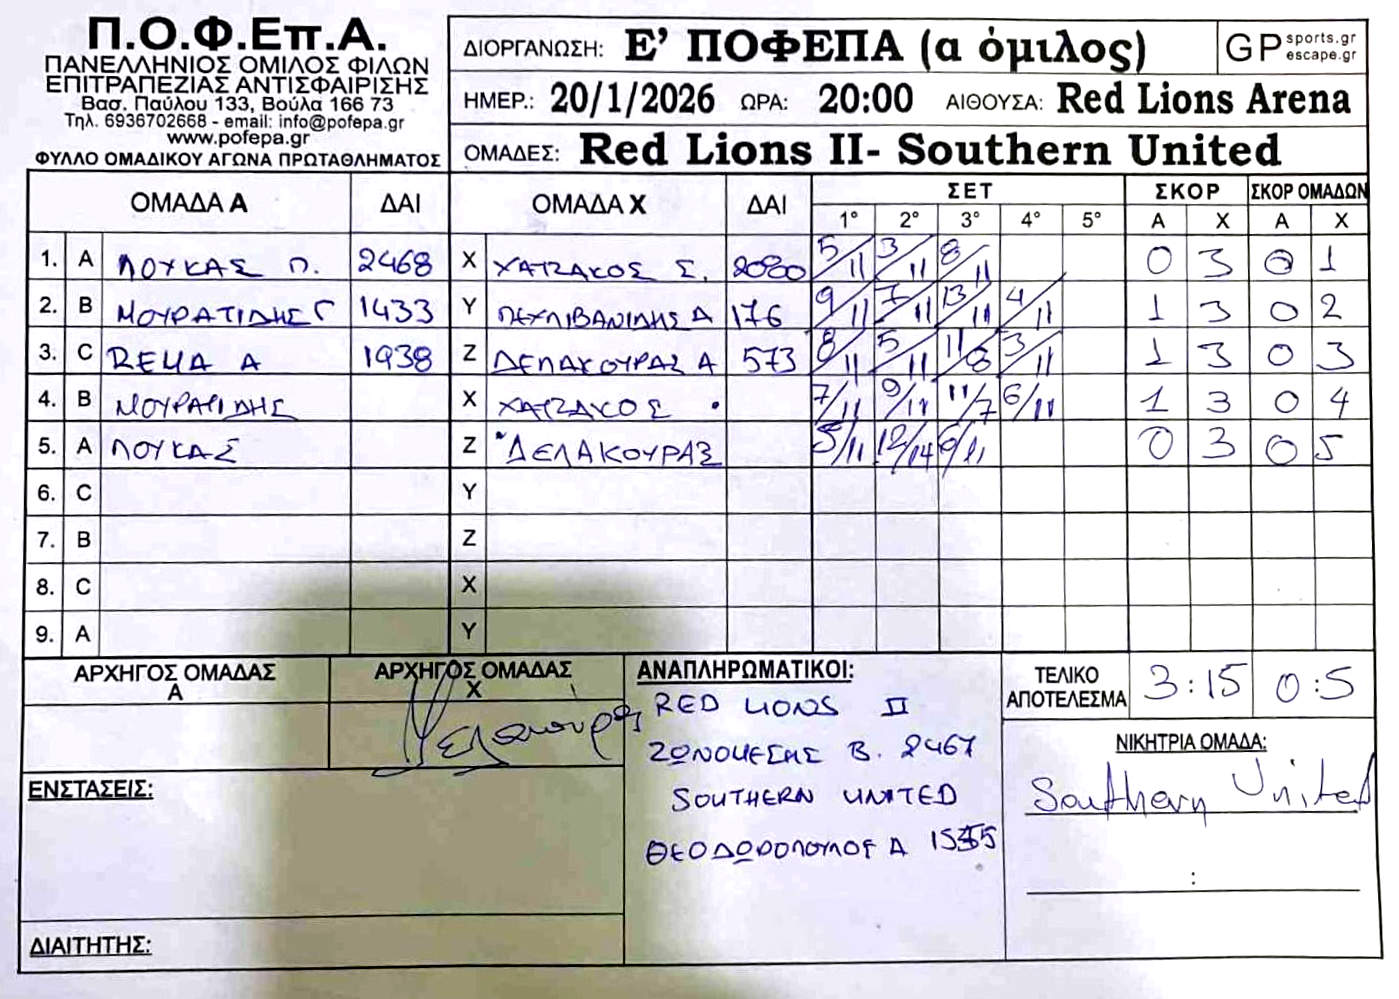 Π.Ο.Φ.Επ.Α.
ΠΑΝΕΛΛΗΝΙΟΣ ΟΜΙΛΟΣ ΦΙΛΩΝ
ΕΠΙΤΡΑΠΕΖΙΑΣ ΑΝΤΙΣΦΑΙΡΙΣΗΣ
Βασ. Παύλου 133, Βούλα 166 73
Τηλ. 6936702668 - email: info@pofepa.gr
www.pofepa.gr
ΦΥΛΛΟ ΟΜΑΔΙΚΟΥ ΑΓΩΝΑ ΠΡΩΤΑΘΛΗΜΑΤΟΣ
ΔΙΟΡΓΑΝΩΣΗ: Ε' ΠΟΦΕΠΑ (α όμιλος)
GP sports.gr escape.gr
ΗΜΕΡ.: 20/1/2026 ΩΡΑ: 20:00 ΑΙΘΟΥΣΑ: Red Lions Arena
ΟΜΑΔΕΣ: Red Lions II- Southern United
ΟΜΑΔΑ Α ΔΑΙ ΟΜΑΔΑ Χ ΔΑΙ ΣΕΤ ΣΚΟΡ ΣΚΟΡ ΟΜΑΔΩΝ
1° 2° 3° 4° 5° Α Χ Α Χ
1. Α ΛΟΥΚΑΣ Π. 2468 Χ ΧΑΤΖΑΚΟΣ Σ. 2080 5/11 3/11 8/11 0 3 0 1
2. Β ΜΟΥΡΑΤΙΔΗΣ Γ 1433 Υ ΠΕΧΛΙΒΑΝΙΔΗΣ Α 176 9/11 7/11 13/11 4/11 1 3 0 2
3. C REMA A 1938 Ζ ΔΕΛΑΚΟΥΡΑΣ Α 573 8/11 5/11 11/8 3/11 1 3 0 3
4. Β ΜΟΥΡΑΤΙΔΗΣ Χ ΧΑΤΖΑΚΟΣ 7/11 9/11 11/7 6/11 1 3 0 4
5. Α ΛΟΥΚΑΣ Ζ ΔΕΛΑΚΟΥΡΑΣ 5/11 12/14 9/11 0 3 0 5
6. C Υ
7. Β Ζ
8. C Χ
9. Α Υ
ΑΡΧΗΓΟΣ ΟΜΑΔΑΣ Α
ΑΡΧΗΓΟΣ ΟΜΑΔΑΣ Χ
ΕΝΣΤΑΣΕΙΣ:
ΔΙΑΙΤΗΤΗΣ:
ΑΝΑΠΛΗΡΩΜΑΤΙΚΟΙ:
RED LIONS II
Β. 2467
SOUTHERN UNITED
ΘΕΟΔΩΡΟΠΟΥΛΟΣ Α
ΤΕΛΙΚΟ ΑΠΟΤΕΛΕΣΜΑ 3:15 0:5
ΝΙΚΗΤΡΙΑ ΟΜΑΔΑ:
Southern United
: